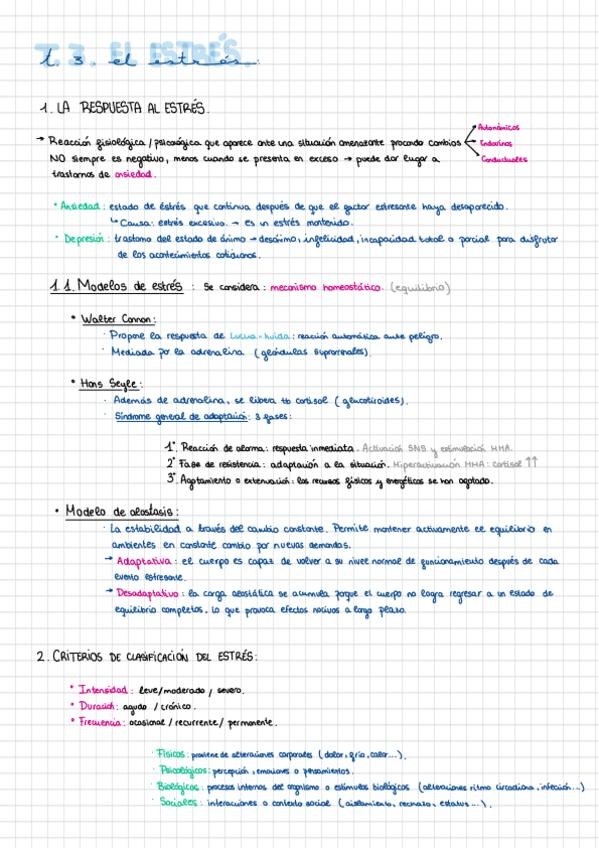 T. 3. EL ESTRÉS.
t. 3. el estrés.
1. LA RESPUESTA AL ESTRÉS.
→ Reacción fisiológica / psicológica que aparece ante una situación amenazante procando cambios
Autonómicos
Endocrinos
Conductuales
NO siempre es negativo, menos cuando se presenta en exceso → puede dar lugar a
trastornos de ansiedad.
· Ansiedad: estado de éstrés que continua después de que el factor estresante haya desaparecido.
↳ Causa: estrés excesivo. → es un estrés mantenido.
· Depresión: trastorno del estado de ánimo → desánimo, infelicidad, incapacidad total o parcial para disfrutar
de los acontecimientos cotidianos.
1.1. Modelos de estrés : se considera: mecanismo homeostático. (equilibrio)
• Walter Cannon:
· Propone la respuesta de lucha-huida: reacción automática ante peligro.
· Mediada por la adrenalina (glándulas suprarrenales)
• Hans Seyle:
· Además de adrenalina, se libera tb cortisol (glucocorticoides).
· Síndrome general de adaptación: 3 fases:
1º Reacción de alarma: respuesta inmediata. Activación SNS y estimulación HHA.
2º Fase de resistencia: adaptación a la situación. Hiperactivación HHA: cortisol ↑↑
3º Agotamiento o extenuación: los recursos físicos y energéticos se han agotado.
• Modelo de alostasis:
· La estabilidad a través del cambio constante. Permite mantener activamente el equilibrio en
ambientes en constante cambio por nuevas demandas.
→ Adaptativa: el cuerpo es capaz de volver a su nivel normal de funcionamiento después de cada
evento estresante.
→ Desadaptativo: la carga alostática se acumula porque el cuerpo no logra regresar a un estado de
equilibrio completos, lo que provoca efectos nocivos a largo plazo.
2. CRITERIOS DE CLASIFICACIÓN DEL ESTRÉS:
• Intensidad: leve/moderado / severo.
• Duración: agudo / crónico.
• Frecuencia: ocasional / recurrente / permanente.
· Físicos: proviene de alteraciones corporales (dolor, frío, calor...).
· Psicológicos: percepción, emociones o pensamientos.
· Biológicos: procesos internos del organismo o estímulos biológicos (alteraciones ritmo circadiano, infección...)
· Sociales: interacciones o contexto social (aislamiento, rechazo, estatus...).